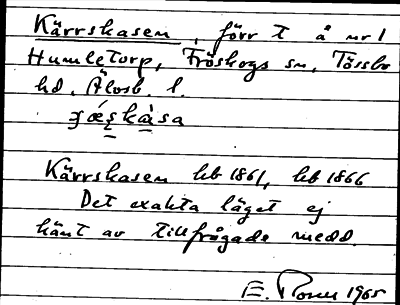 Kärrskasen, förr t å nr 1
Humletorp, Fröskogs sn, Tössbo
hd. Älvsb. l.
kasa
Kärrskasen hb 1861, hb 1866
Det exakta läget ej
känt av tillfrågade medd.
E. 1965